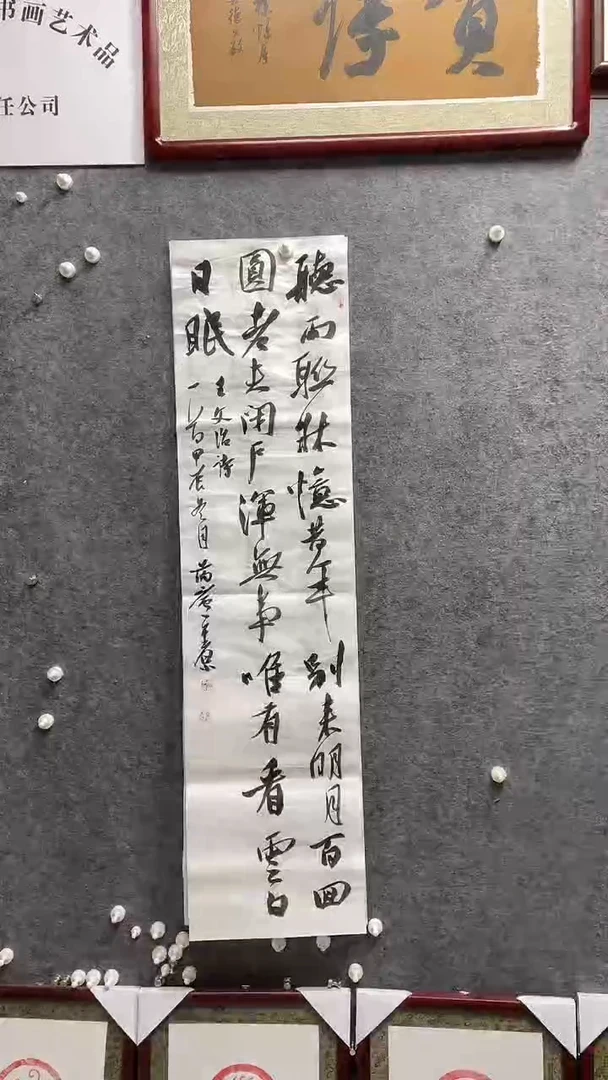 书画艺术品
任公司
聽雨聯牀憶昔年別來明月百回
圓老去閉戶渾無事唯有看雲白
日眠
王文治詩
一首甲辰冬月